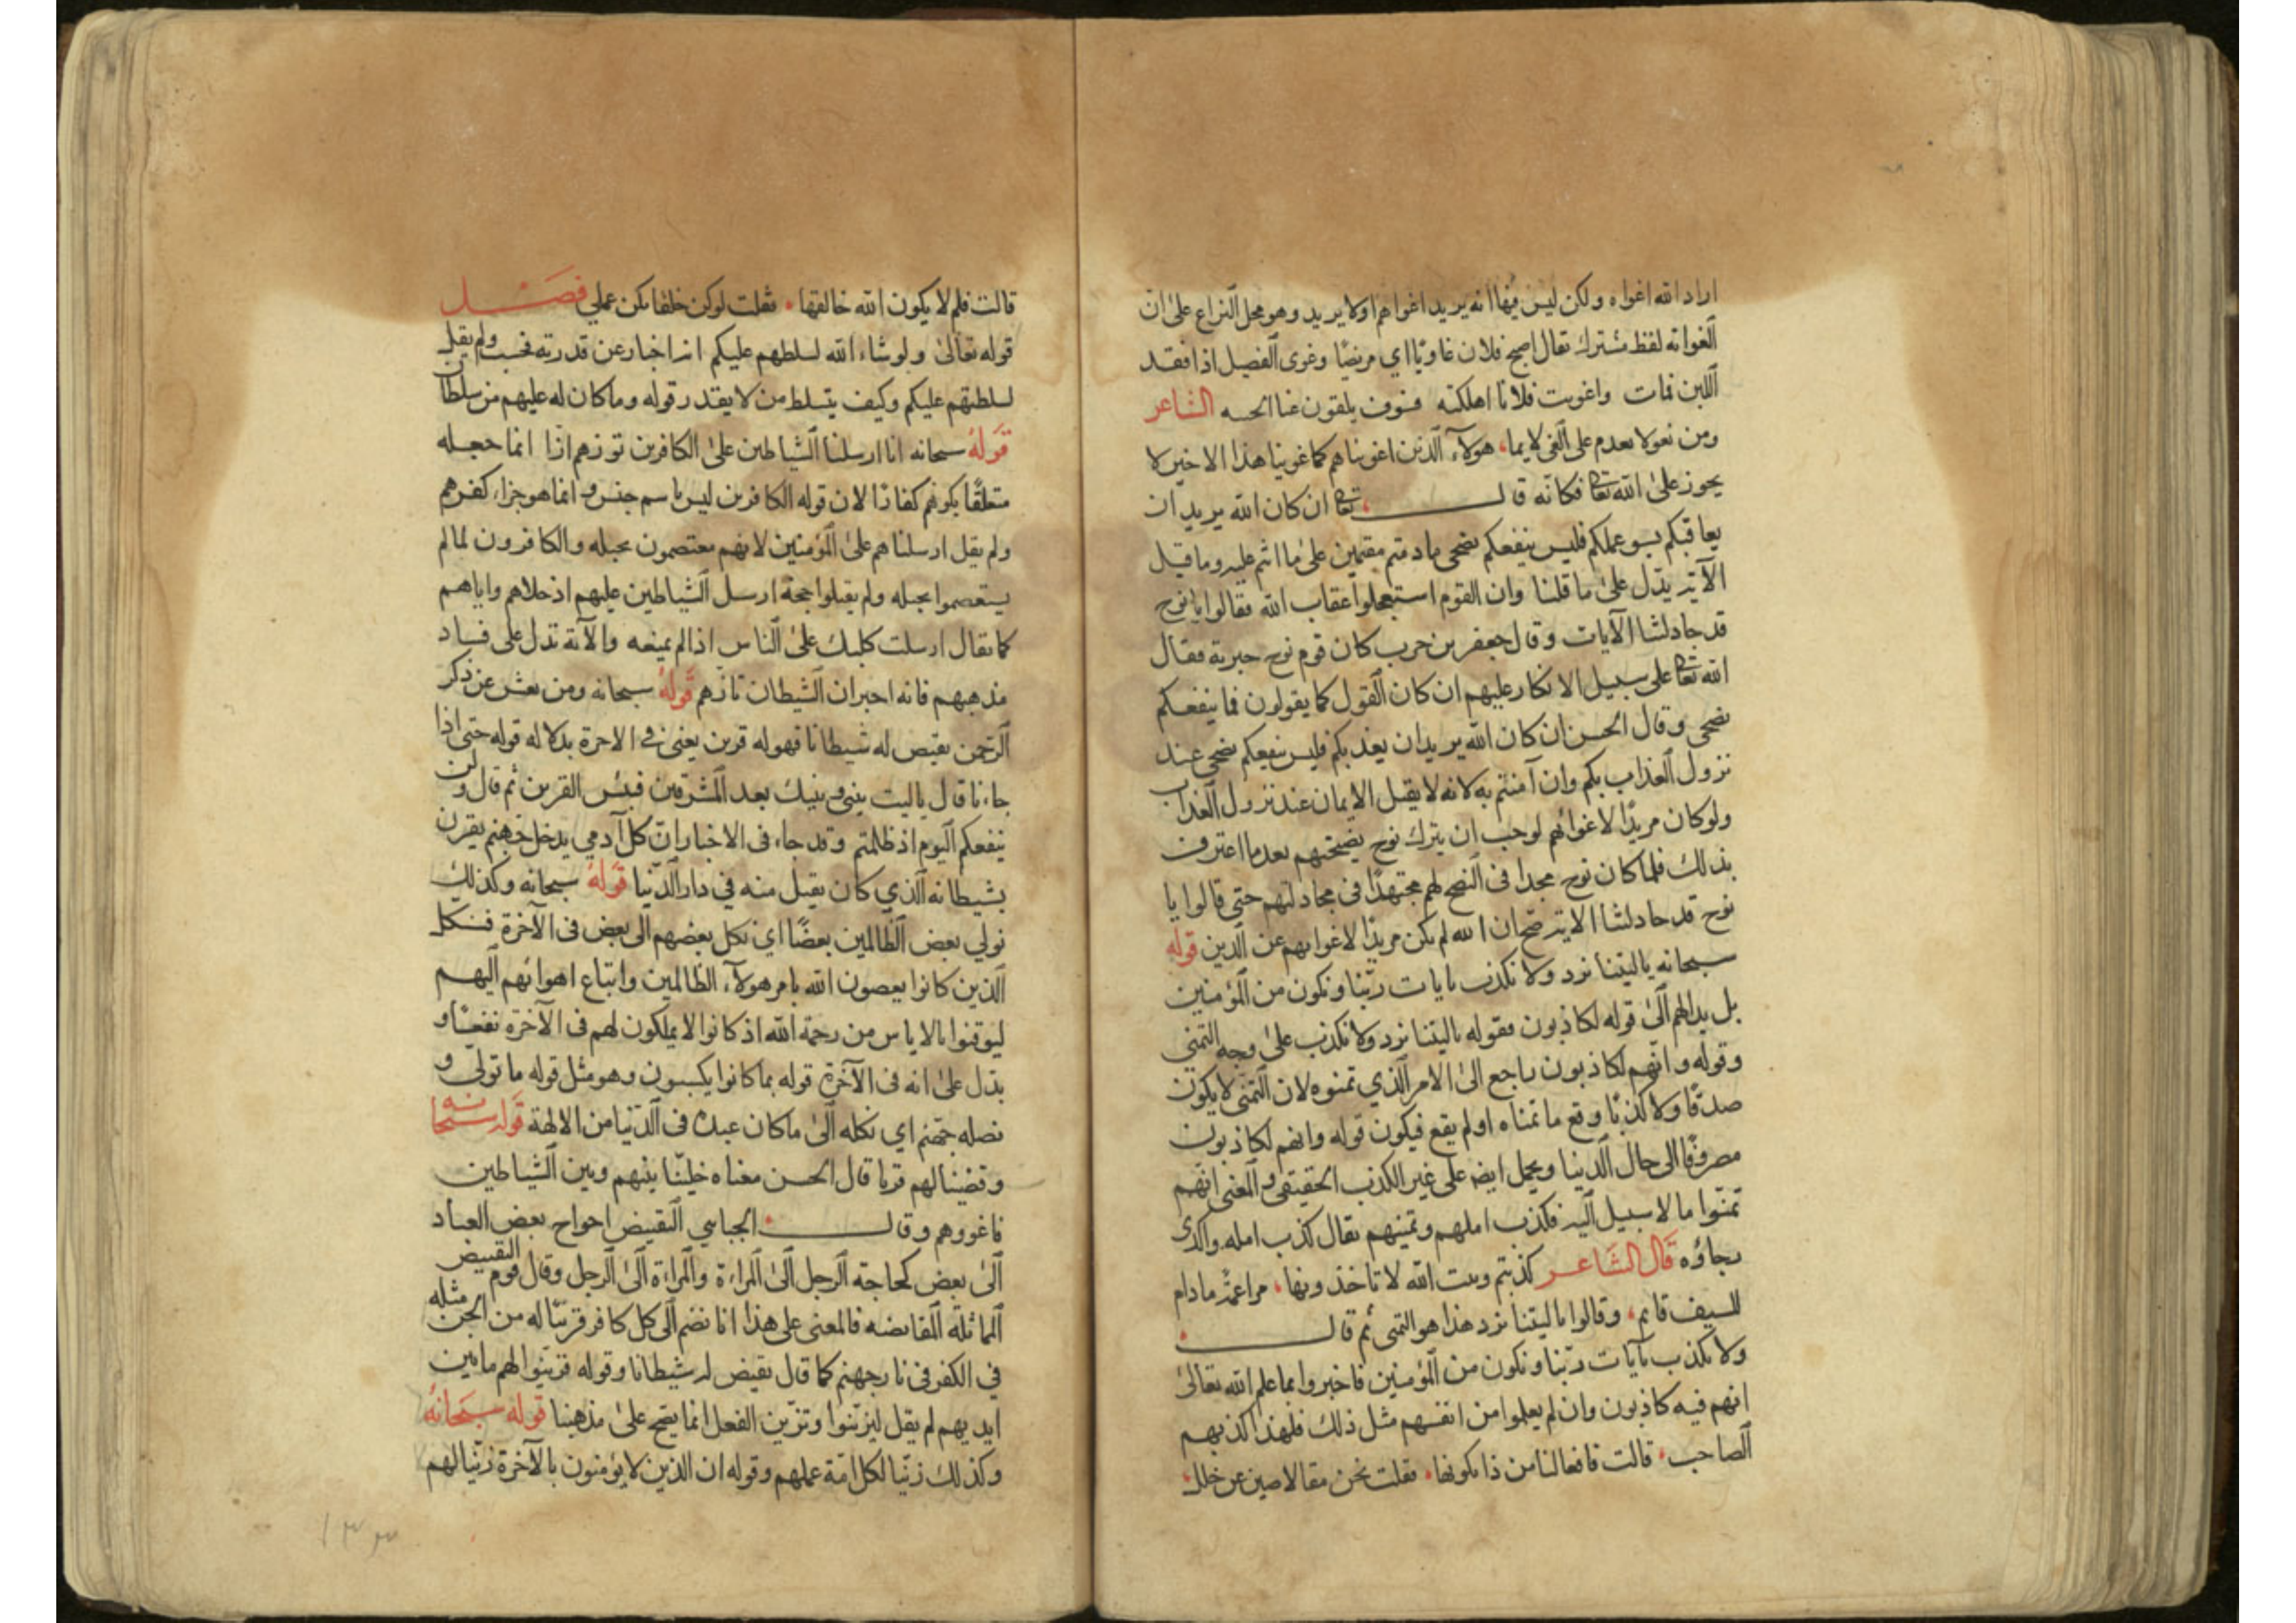 اراد الله اغواه ولكن ليس فيها انه يريد اغواهم او لا يريد وهو محل النزاع على ان
الغواية لفظ مشترك يقال اصبح فلان غاويا اي مريضا وغوى الفصيل اذا فقد
اللبن فمات واغويت فلانا اهلكته فسوف يلقون غيا الشاعر
ومن يغو لا يعدم على الغي لايما هولاء الذين اغويناهم كما غوينا هذا الاخير لا
يجوز على الله تعا فكانه قال تعا ان كان الله يريد ان
يعاقبكم بسو عملكم فليس ينفعكم نصحي ما دمتم مقيمين على ما انتم عليه وما قبل
الآية يدل على ما قلنا وان القوم استعجلوا عقاب الله فقالوا يا نوح
قد جادلتنا الآيات وقال جعفر بن حرب كان قوم نوح جبرية فقال
الله تعا على سبيل الانكار عليهم ان كان القول كما يقولون فما ينفعكم
نصحي وقال الحسن ان كان الله يريد ان يعذبكم فليس ينفعكم نصحي عند
نزول العذاب بكم وان آمنتم به لانه لا يقبل الايمان عند نزول العذاب
ولو كان مريدا لاغوائهم لوجب ان يترك نوح نصيحتهم بعد ما اعترف
بذلك فلما كان نوح مجدا فى النصح لهم مجتهدا فى مجادلتهم حتى قالوا يا
نوح قد جادلتنا الاية صح ان الله لم يكن مريدا لاغوايهم عن الدين قوله
سبحانه ياليتنا نرد ولا نكذب بايات ربنا ونكون من المؤمنين
بل بدا لهم الى قوله لكاذبون فقوله ياليتنا نرد ولا نكذب على وجه التمني
وقوله وانهم لكاذبون راجع الى الامر الذي تمنوه لان التمنى لا يكون
صدقا ولا كذبا وقع ما تمناه او لم يقع فيكون قوله وانهم لكاذبون
مصروفا الى حال الدنيا ويحمل ايضا على غير الكذب الحقيقى والمعنى انهم
تمنوا ما لا سبيل اليه فكذب املهم وتمنيهم يقال كذب امله واكدى
رجاؤه قال الشاعر كذبتم وبيت الله لا تاخذونها مراغمة ما دام
للسيف قايم وقالوا ياليتنا نرد هذا هو التمنى ثم قال
ولا نكذب بآيات ربنا ونكون من المؤمنين فاخبروا بما علم الله تعالى
انهم فيه كاذبون وان لم يعلموا من انفسهم مثل ذلك فلهذا اكذبهم
الصاحب قالت فافعالنا من ذا يكونها فقلت نحن مقالا صين عن خلل
قالت فلم لا يكون الله خالقها فقلت لو كن خلقا لم يكن عملي فصل
قوله تعالى ولو شاء الله لسلطهم عليكم انما اخبار عن قدرته فحسب ولم يقل
لسلطتهم عليكم وكيف يتسلط من لا يقدر وقوله وما كان له عليهم من سلطان
قوله سبحانه انا ارسلنا الشياطين على الكافرين تؤزهم ازا انما جعله
متعلقا بكونهم كفارا لان قوله الكافرين ليس باسم جنس وانما هو جزاء كفرهم
ولم يقل ارسلناهم على المؤمنين لانهم معتصمون بحبله والكافرون لما لم
يستعصموا بحبله ولم يقبلوا حجة ارسل الشياطين عليهم اذ خلاهم واياهم
كما يقال ارسلت كلبك على الناس اذا لم يمنعه والآية تدل على فساد
مذهبهم فانه اخبر ان الشيطان تازهم قوله سبحانه ومن يعش عن ذكر
الرحمن نقيض له شيطانا فهو له قرين يعنى في الاخرة بدلالة قوله حتى اذا
جاءنا قال ياليت بينى وبينك بعد المشرقين فبئس القرين ثم قال ولن
ينفعكم اليوم اذ ظلمتم وقد جاء فى الاخبار ان كل آدمي يدخل جهنم يقرن
بشيطانه الذي كان يقبل منه في دار الدنيا قوله سبحانه وكذلك
نولي بعض الظالمين بعضا اي نكل بعضهم الى بعض فى الآخرة فنكل
الذين كانوا يعصون الله بامر هولاء الظالمين واتباع اهوائهم اليهم
ليوقنوا بالاياس من رحمة الله اذ كانوا لا يملكون لهم فى الآخرة نفعا و
يدل على انه فى الآخرة قوله بما كانوا يكسبون وهو مثل قوله ما تولى و
نصله جهنم اي نكله الى ما كان عبده فى الدنيا من الالهة قوله سبحانه
وقضينا لهم قرنا قال الحسن معناه خلينا بينهم وبين الشياطين
فاغووهم وقال الجبايي التقييض احواج بعض العباد
الى بعض كحاجة الرجل الى المراءة والمراءة الى الرجل وقال قوم التقييض
المماثلة المقايضه فالمعنى على هذا انا نضم الى كل كافر قرينا له من الجن مثله
في الكفر فى نار جهنم كما قال نقيض له شيطانا وقوله فزينوا لهم ما بين
ايديهم لم يقل ليزينوا وتزيين الفعل انما يصح على مذهبنا قوله سبحانه
وكذلك زينا لكل امة عملهم وقوله ان الذين لا يؤمنون بالآخرة زينا لهم
١٣٣